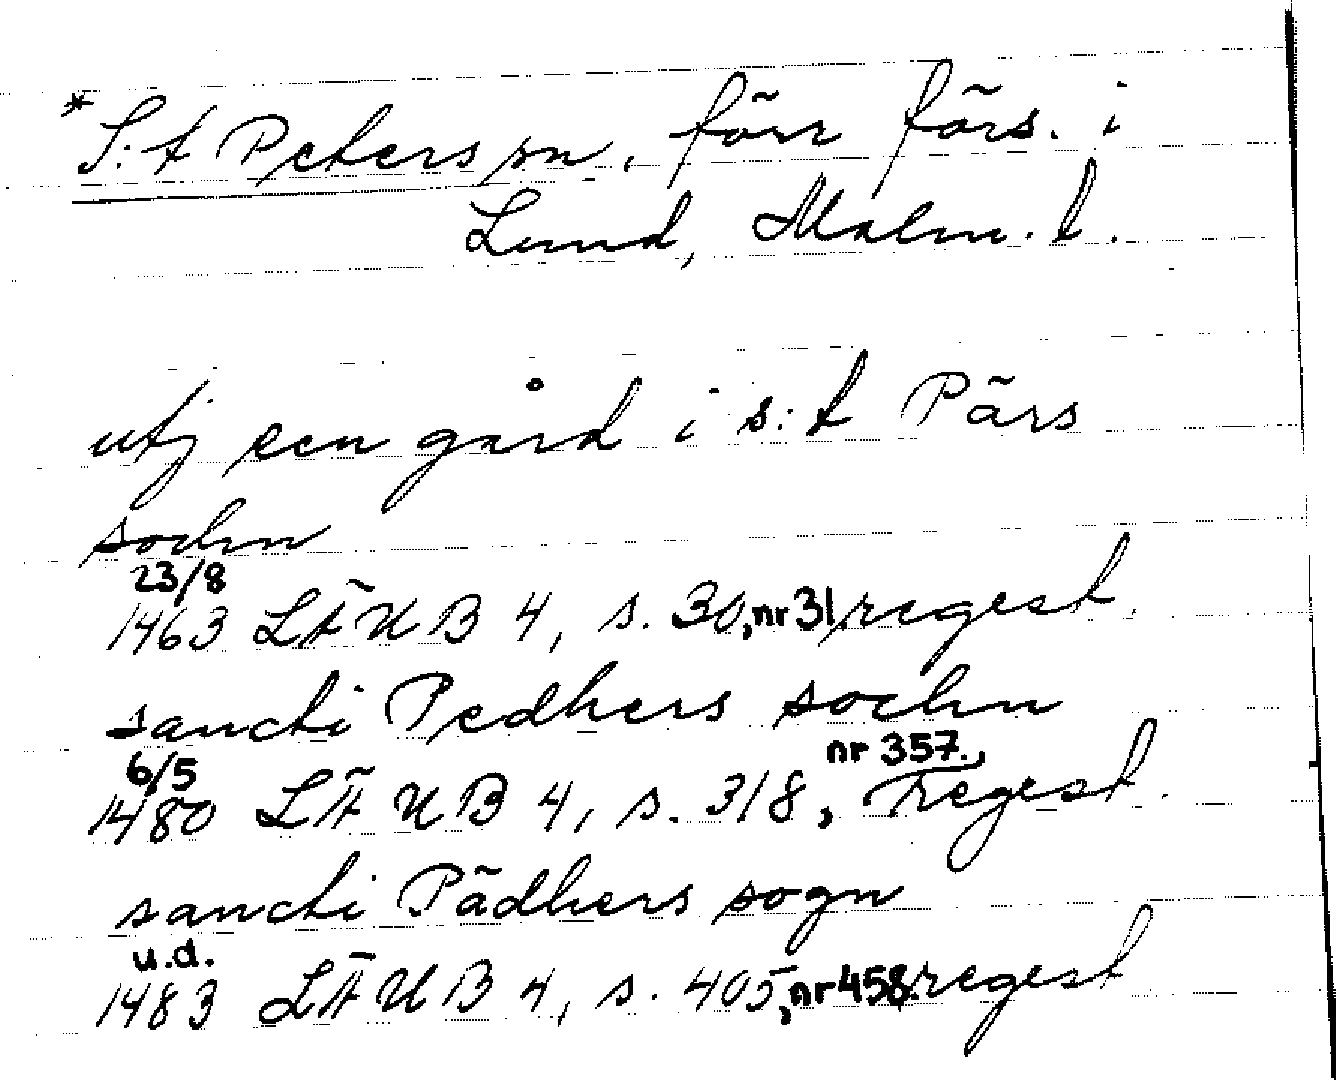 *S:t Peters sn, förr förs. i
Lund, Malm. l.
utj een gård i s:t Pärs
sochn
23/8
1463 LÄUB 4, s. 30, nr 31, regest.
sancti Pedhers sochn
6/5 nr 357.,
1480 LÄUB 4, s. 318, regest.
sancti Pädhers sogn
u.d.
1483 LÄUB 4, s. 405, nr 458. regest